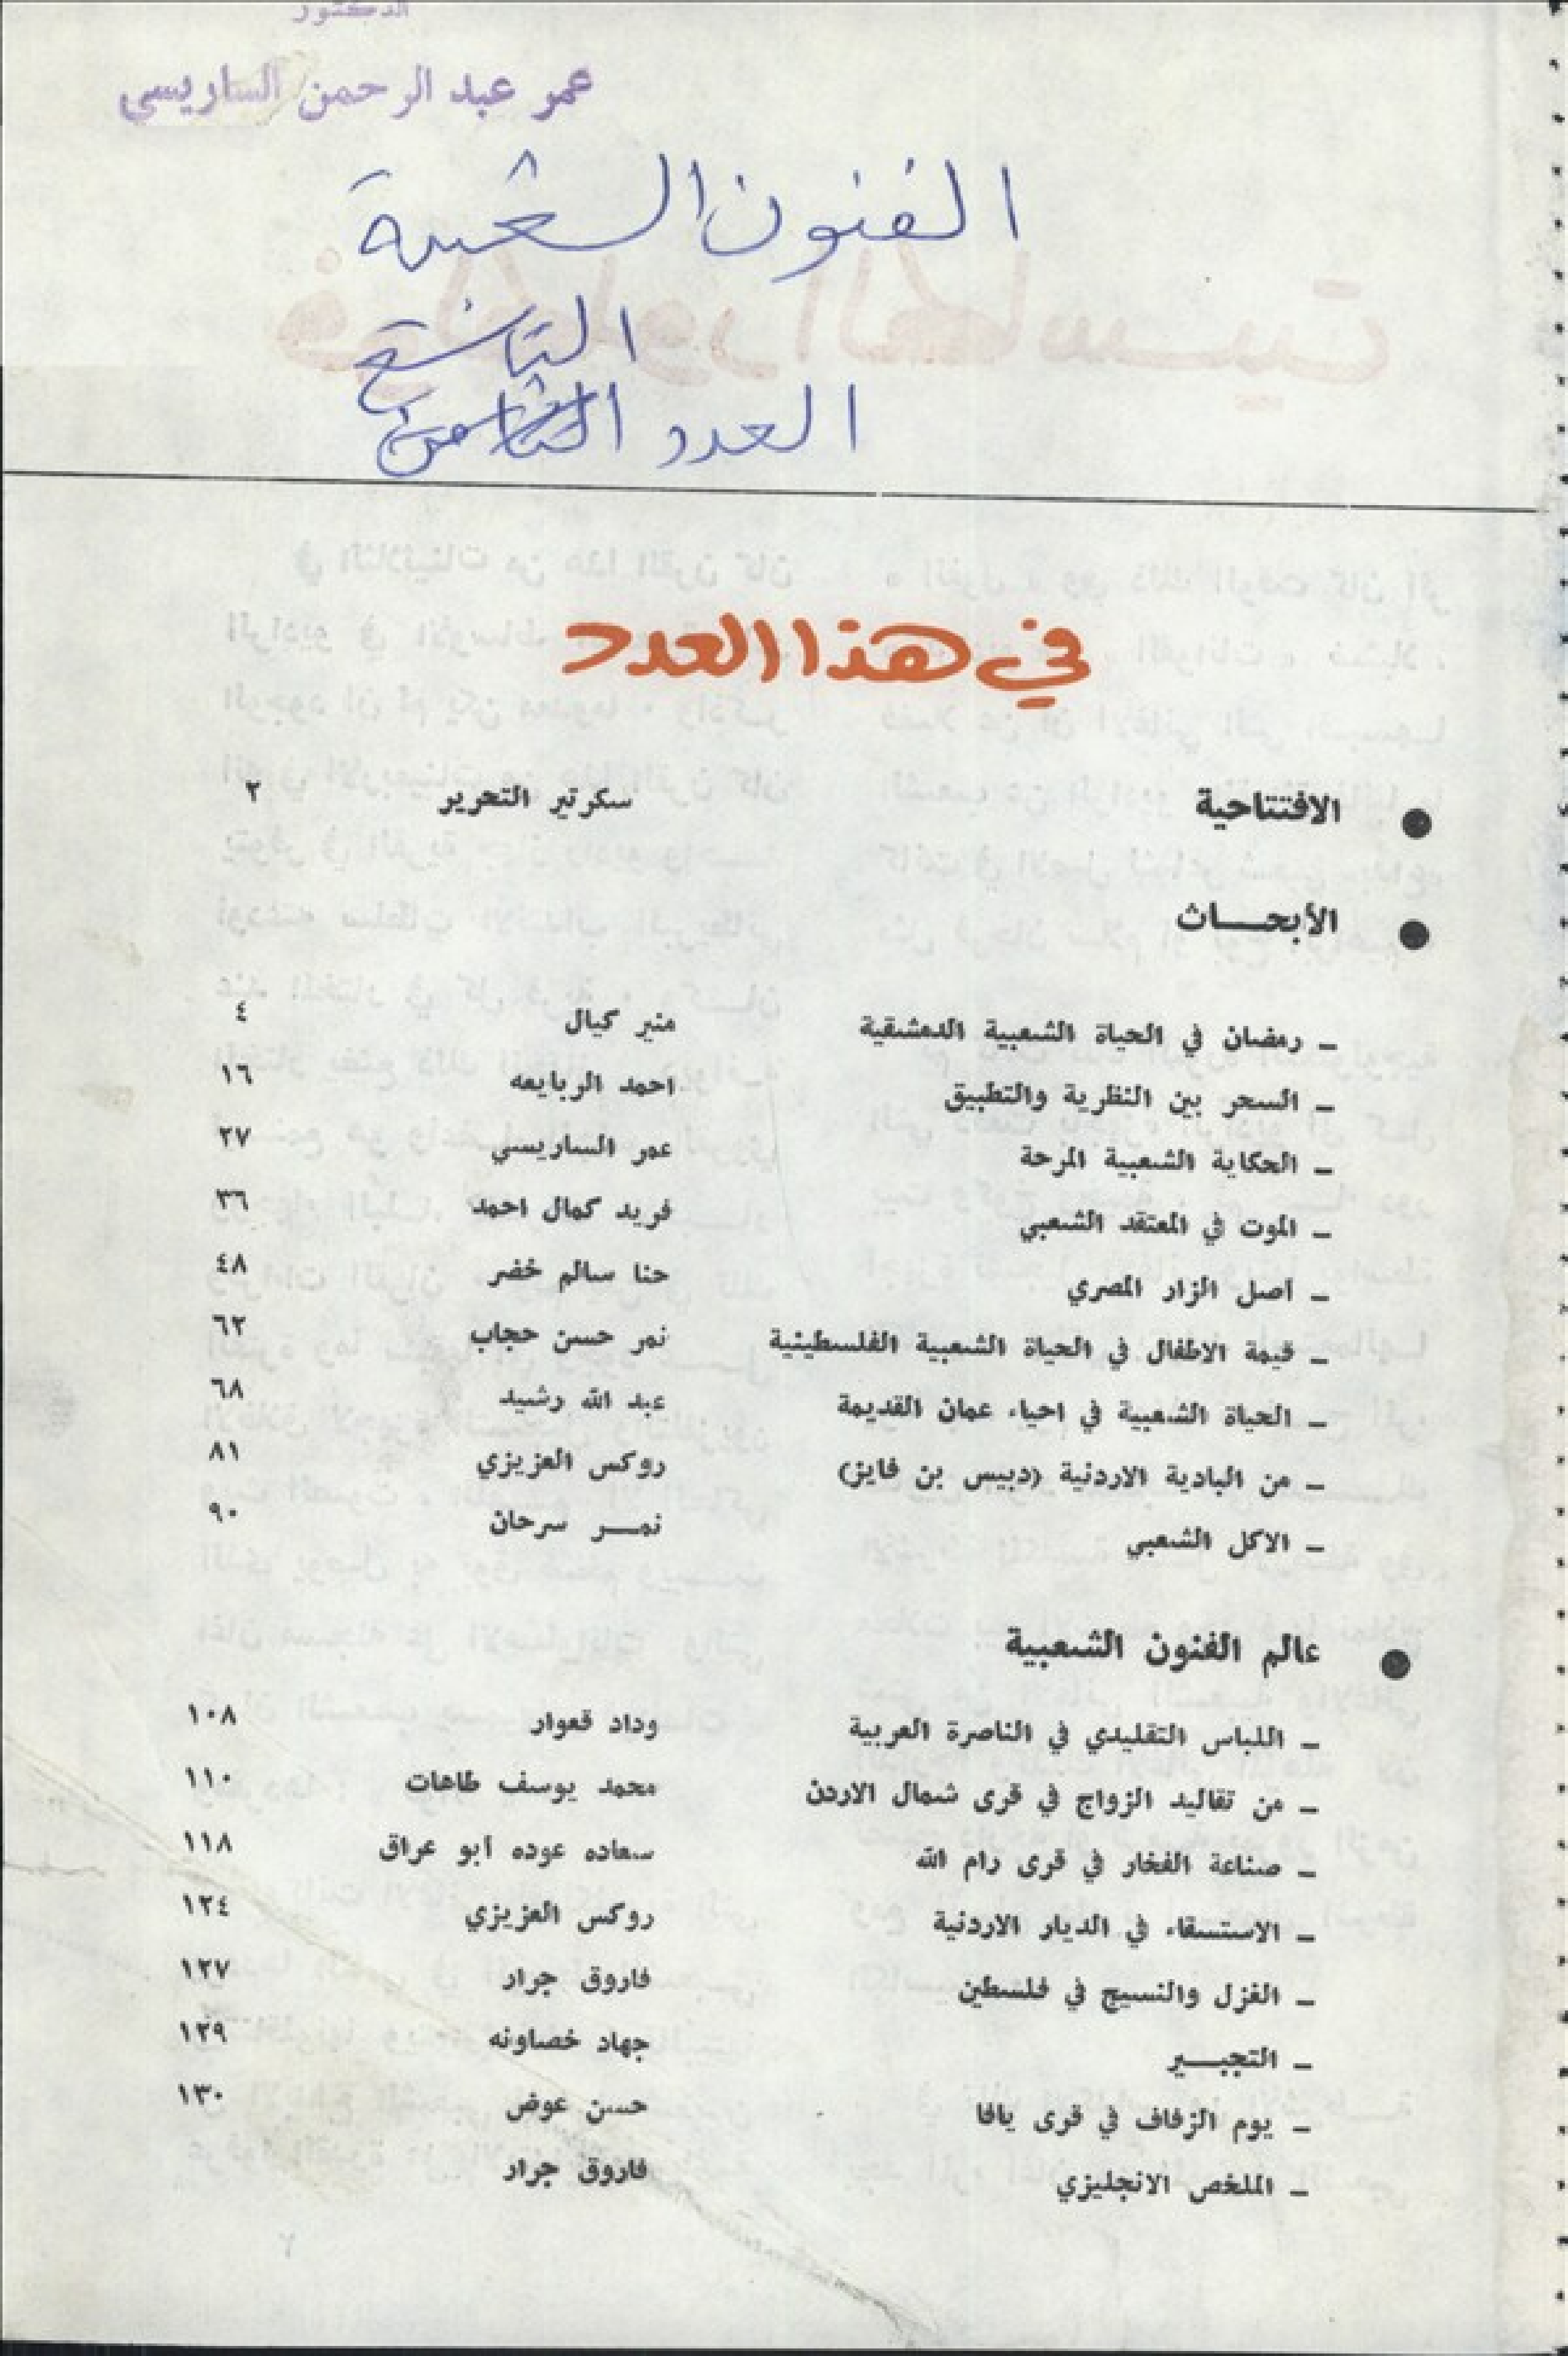 الدكتور
عمر عبد الرحمن الساريسي
الفنون الشعبية
التاسع
العدد الثامن
في هذا العدد
● الافتتاحية سكرتير التحرير ٢
● الأبحـــاث
ـ رمضان في الحياة الشعبية الدمشقية منير كيال ٤
ـ السحر بين النظرية والتطبيق احمد الربايعه ١٦
ـ الحكاية الشعبية المرحة عمر الساريسي ٢٧
ـ الموت في المعتقد الشعبي فريد كمال احمد ٣٦
ـ أصل الزار المصري حنا سالم خضر ٤٨
ـ قيمة الاطفال في الحياة الشعبية الفلسطينية نمر حسن حجاب ٦٢
ـ الحياة الشعبية في احياء عمان القديمة عبد الله رشيد ٦٨
ـ من البادية الاردنية (دبيس بن فايز) روكس العزيزي ٨١
ـ الاكل الشعبي نمـــر سرحان ٩٠
● عالم الفنون الشعبية
ـ اللباس التقليدي في الناصرة العربية وداد قعوار ١٠٨
ـ من تقاليد الزواج في قرى شمال الاردن محمد يوسف طاهات ١١٠
ـ صناعة الفخار في قرى رام الله سعاده عوده أبو عراق ١١٨
ـ الاستسقاء في الديار الاردنية روكس العزيزي ١٢٤
ـ الغزل والنسيج في فلسطين فاروق جرار ١٢٧
ـ التجبـــير جهاد خصاونه ١٢٩
ـ يوم الزفاف في قرى يافا حسن عوض ١٣٠
ـ الملخص الانجليزي فاروق جرار